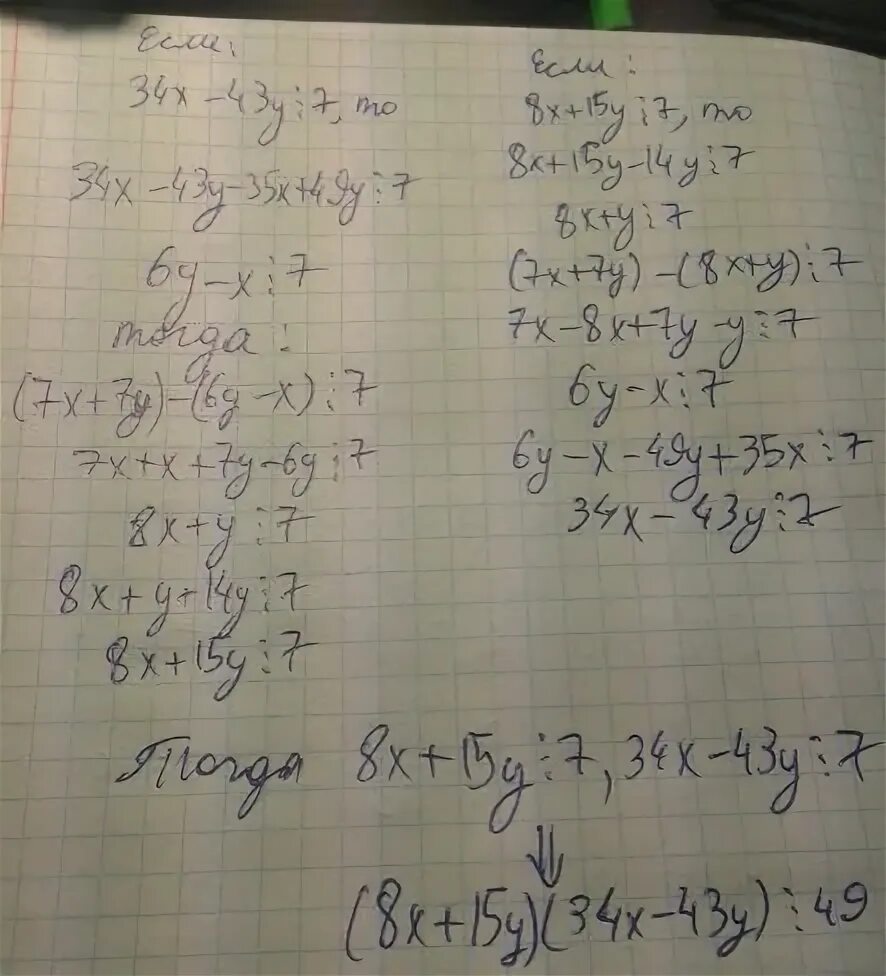 Если:
34x – 43y ⋮ 7, то
34x – 43y – 35x + 49y ⋮ 7
6y – x ⋮ 7
тогда:
(7x + 7y) – (6y – x) ⋮ 7
7x + x + 7y – 6y ⋮ 7
8x + y ⋮ 7
8x + y + 14y ⋮ 7
8x + 15y ⋮ 7
Если:
8x + 15y ⋮ 7, то
8x + 15y – 14y ⋮ 7
8x + y ⋮ 7
(7x + 7y) – (8x + y) ⋮ 7
7x – 8x + 7y – y ⋮ 7
6y – x ⋮ 7
6y – x – 49y + 35x ⋮ 7
34x – 43y ⋮ 7
Тогда 8x + 15y ⋮ 7, 34x – 43y ⋮ 7
⇓
(8x + 15y)(34x – 43y) ⋮ 49